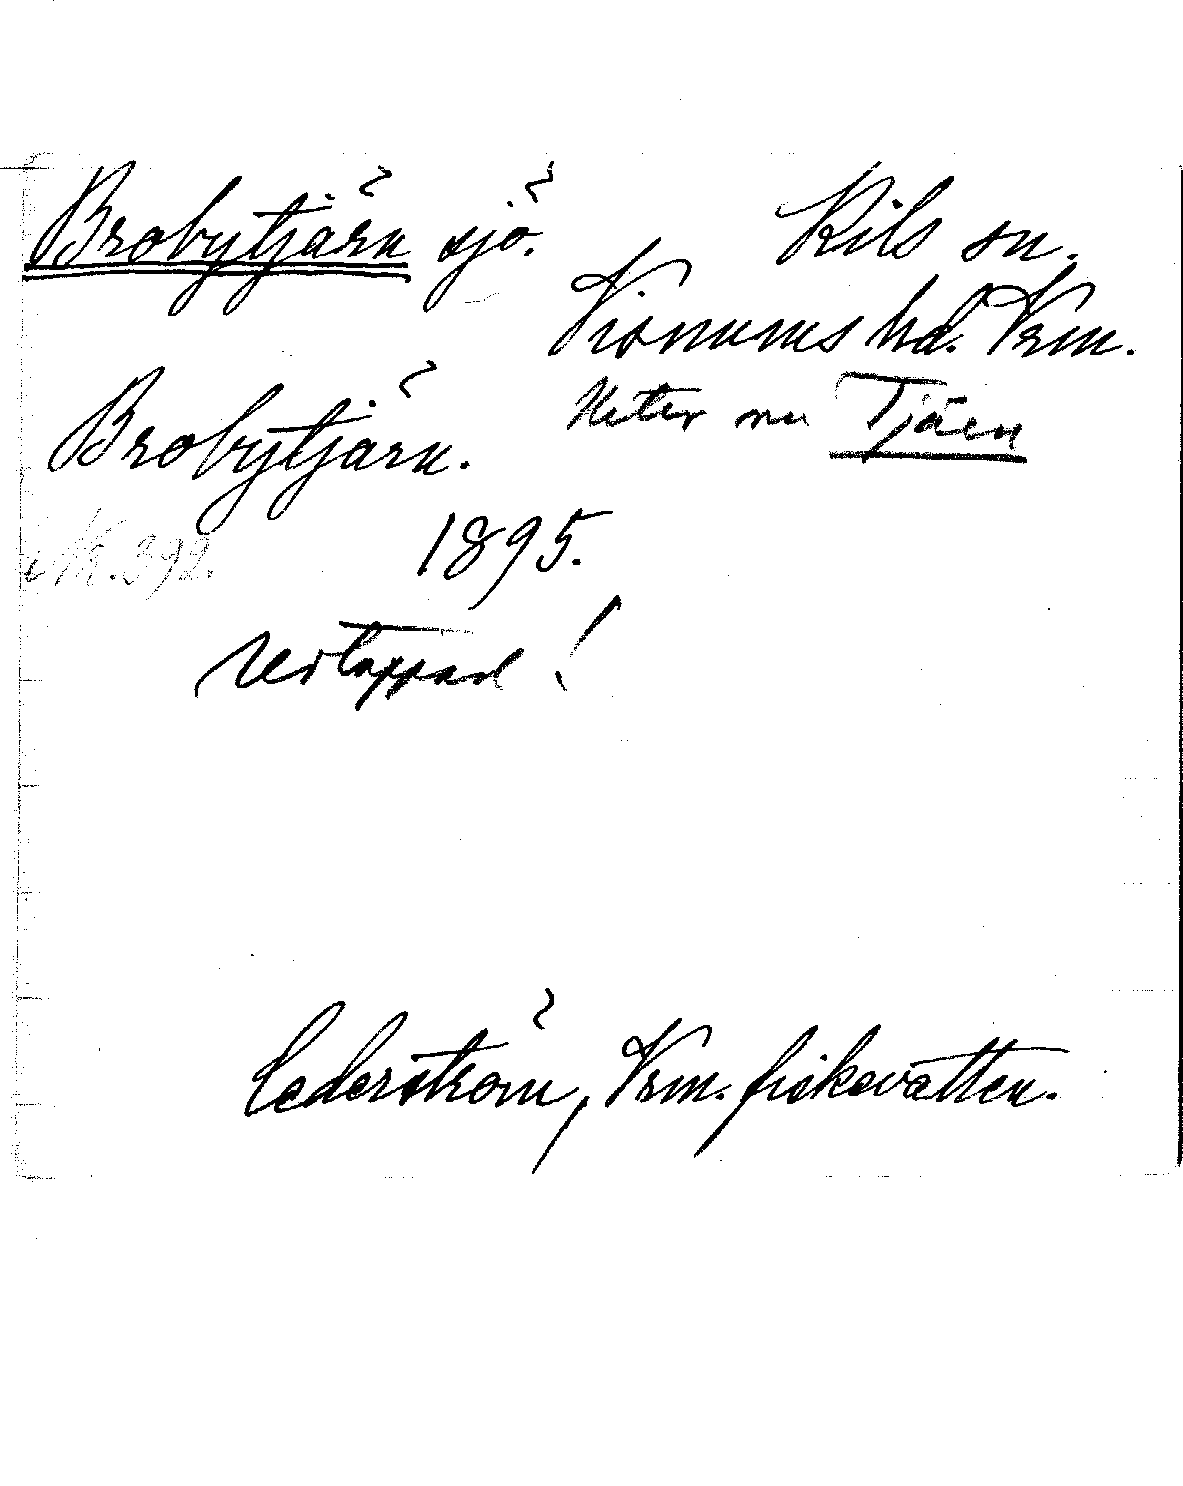 Brobytjärn sjö. Kils sn.
Visnums hd. Vrm.
Heter nu Tjäen
Brobytjärn.
Nr. 392. 1895.
Urtappad!
Cederström, Vrm. fiskevatten.